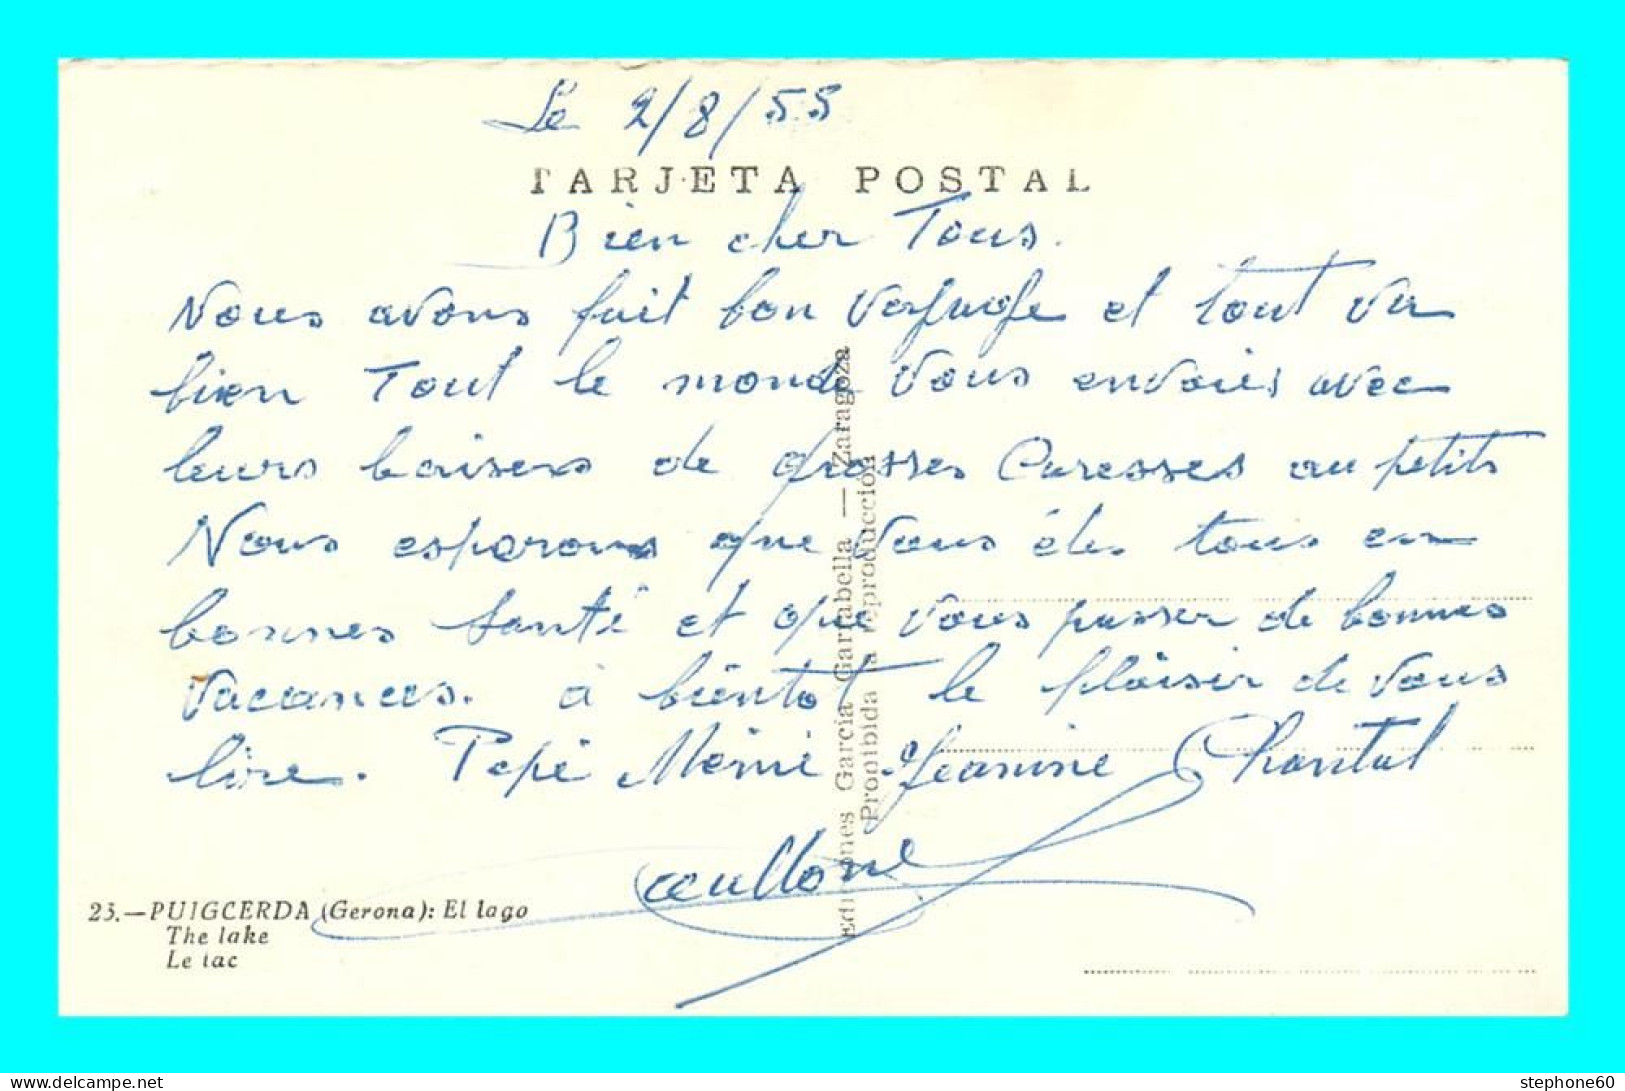 Le 2/8/55
TARJETA POSTAL
Bien cher Tous.
Nous avons fait bon voyage et tout va
bien Tout le monde vous envoies avec
leurs baisers de grosses Caresses au petits
Nous esperons que vous étes tous en
bonnes santé et que vous passer de bonnes
vacances. à bientot le plaisir de vous
lire. Pepé Mémé Jeanine Chantal
Ediciones García Garrabella — Zaragoza
Prohibida la reproducción
25.—PUIGCERDA (Gerona): El lago
The lake
Le lac
stephone60